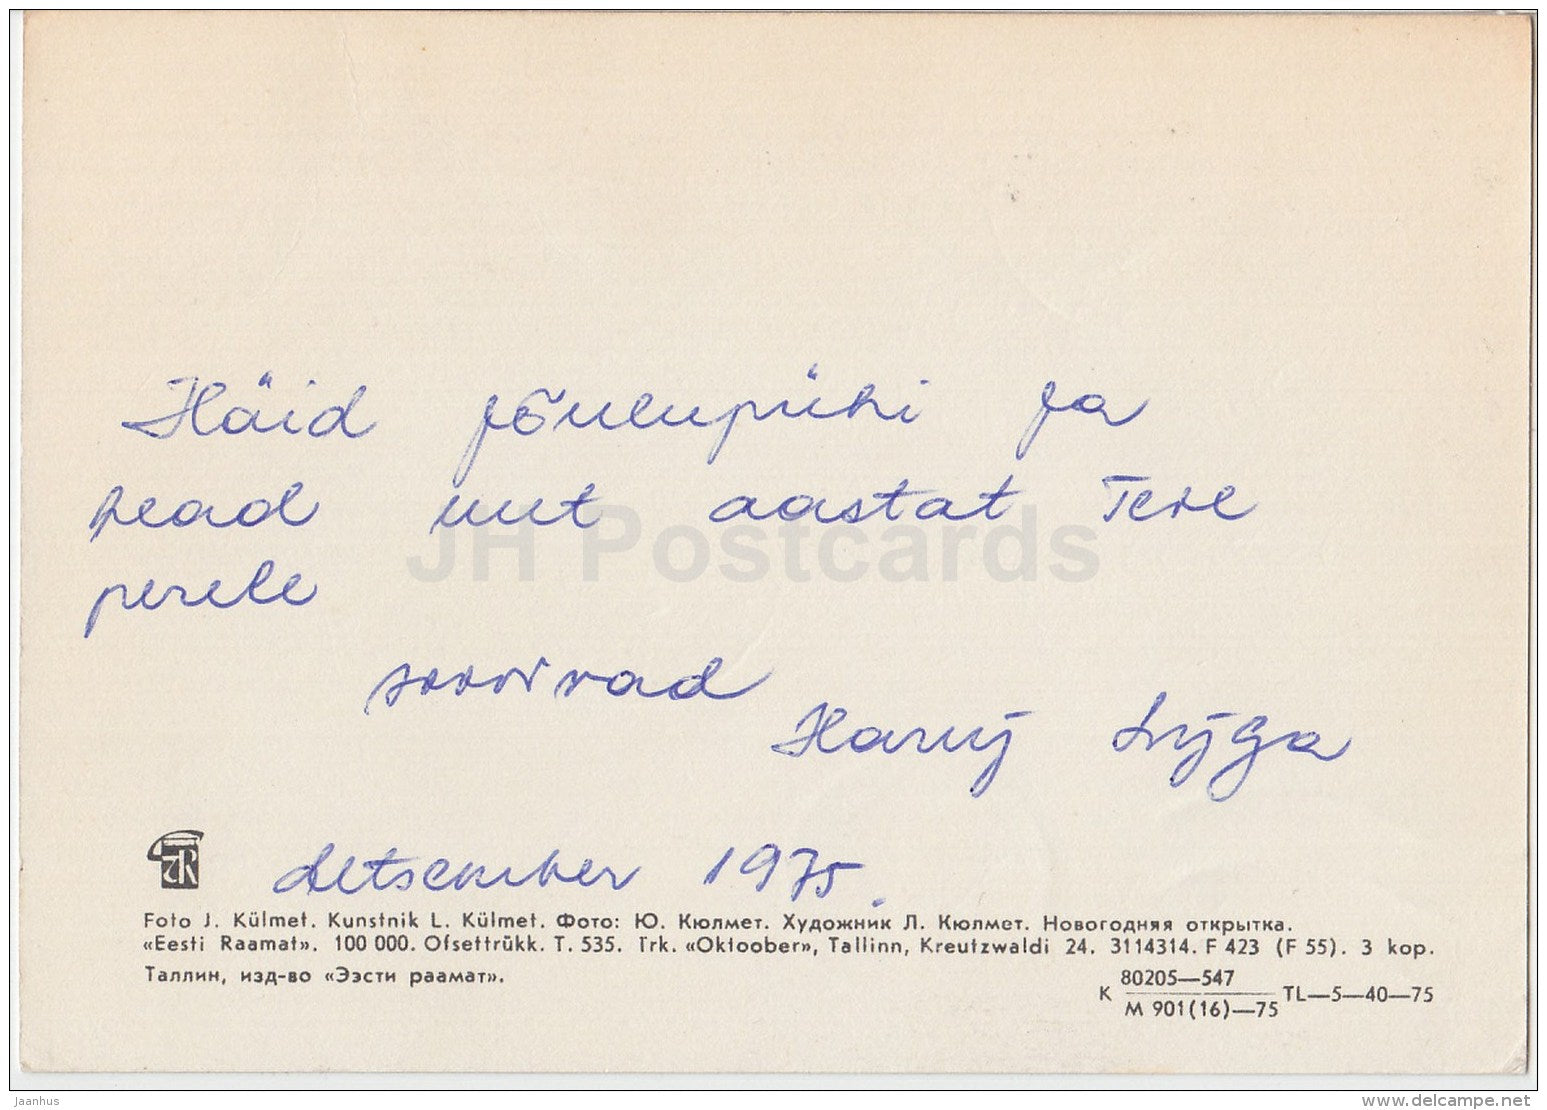 Häid jõulupühi ja
head uut aastat Tere
perele
soovivad
Harry Lyga
detsember 1975.
Foto J. Külmet. Kunstnik L. Külmet. Фото: Ю. Кюлмет. Художник Л. Кюлмет. Новогодняя открытка.
«Eesti Raamat». 100 000. Ofsettrükk. T. 535. Trk. «Oktoober», Tallinn, Kreutzwaldi 24. 3114314. F 423 (F 55). 3 kop.
Таллин, изд-во «Ээсти раамат».
К 80205—547
М 901(16)—75 TL—5—40—75
JH Postcards
Jaanhus
www.delcampe.net